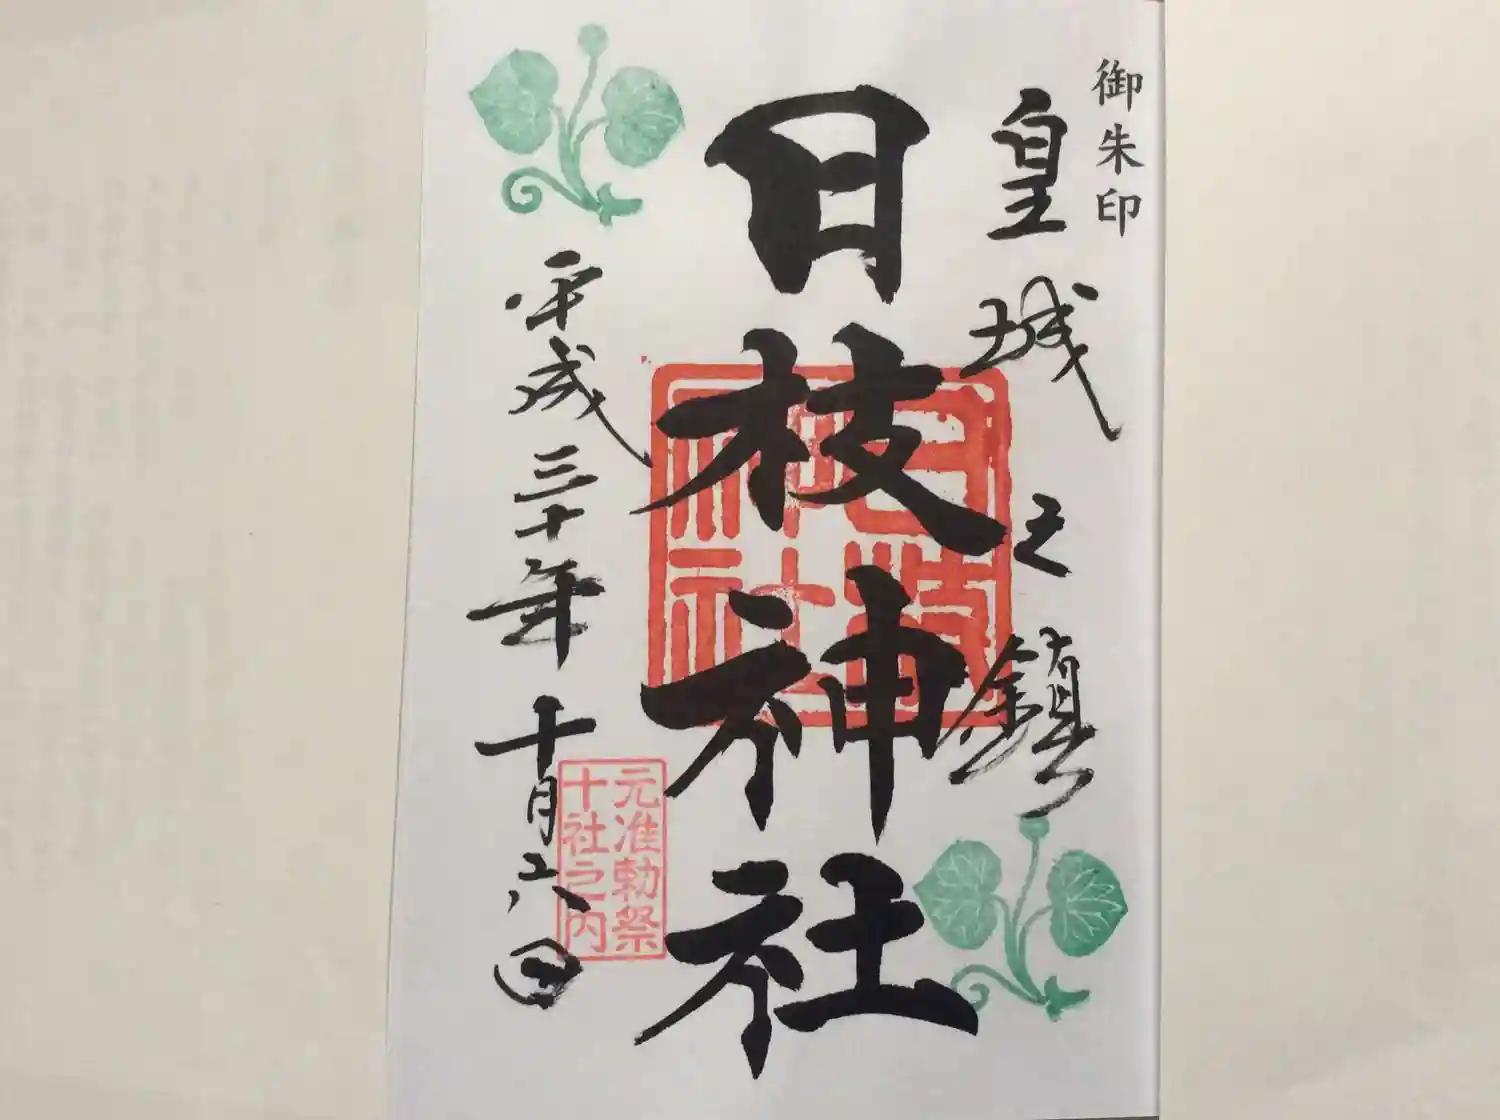 御朱印
皇城之鎮
日枝神社
日枝神社
元准勅祭
十社之内
平成三十年十月六日